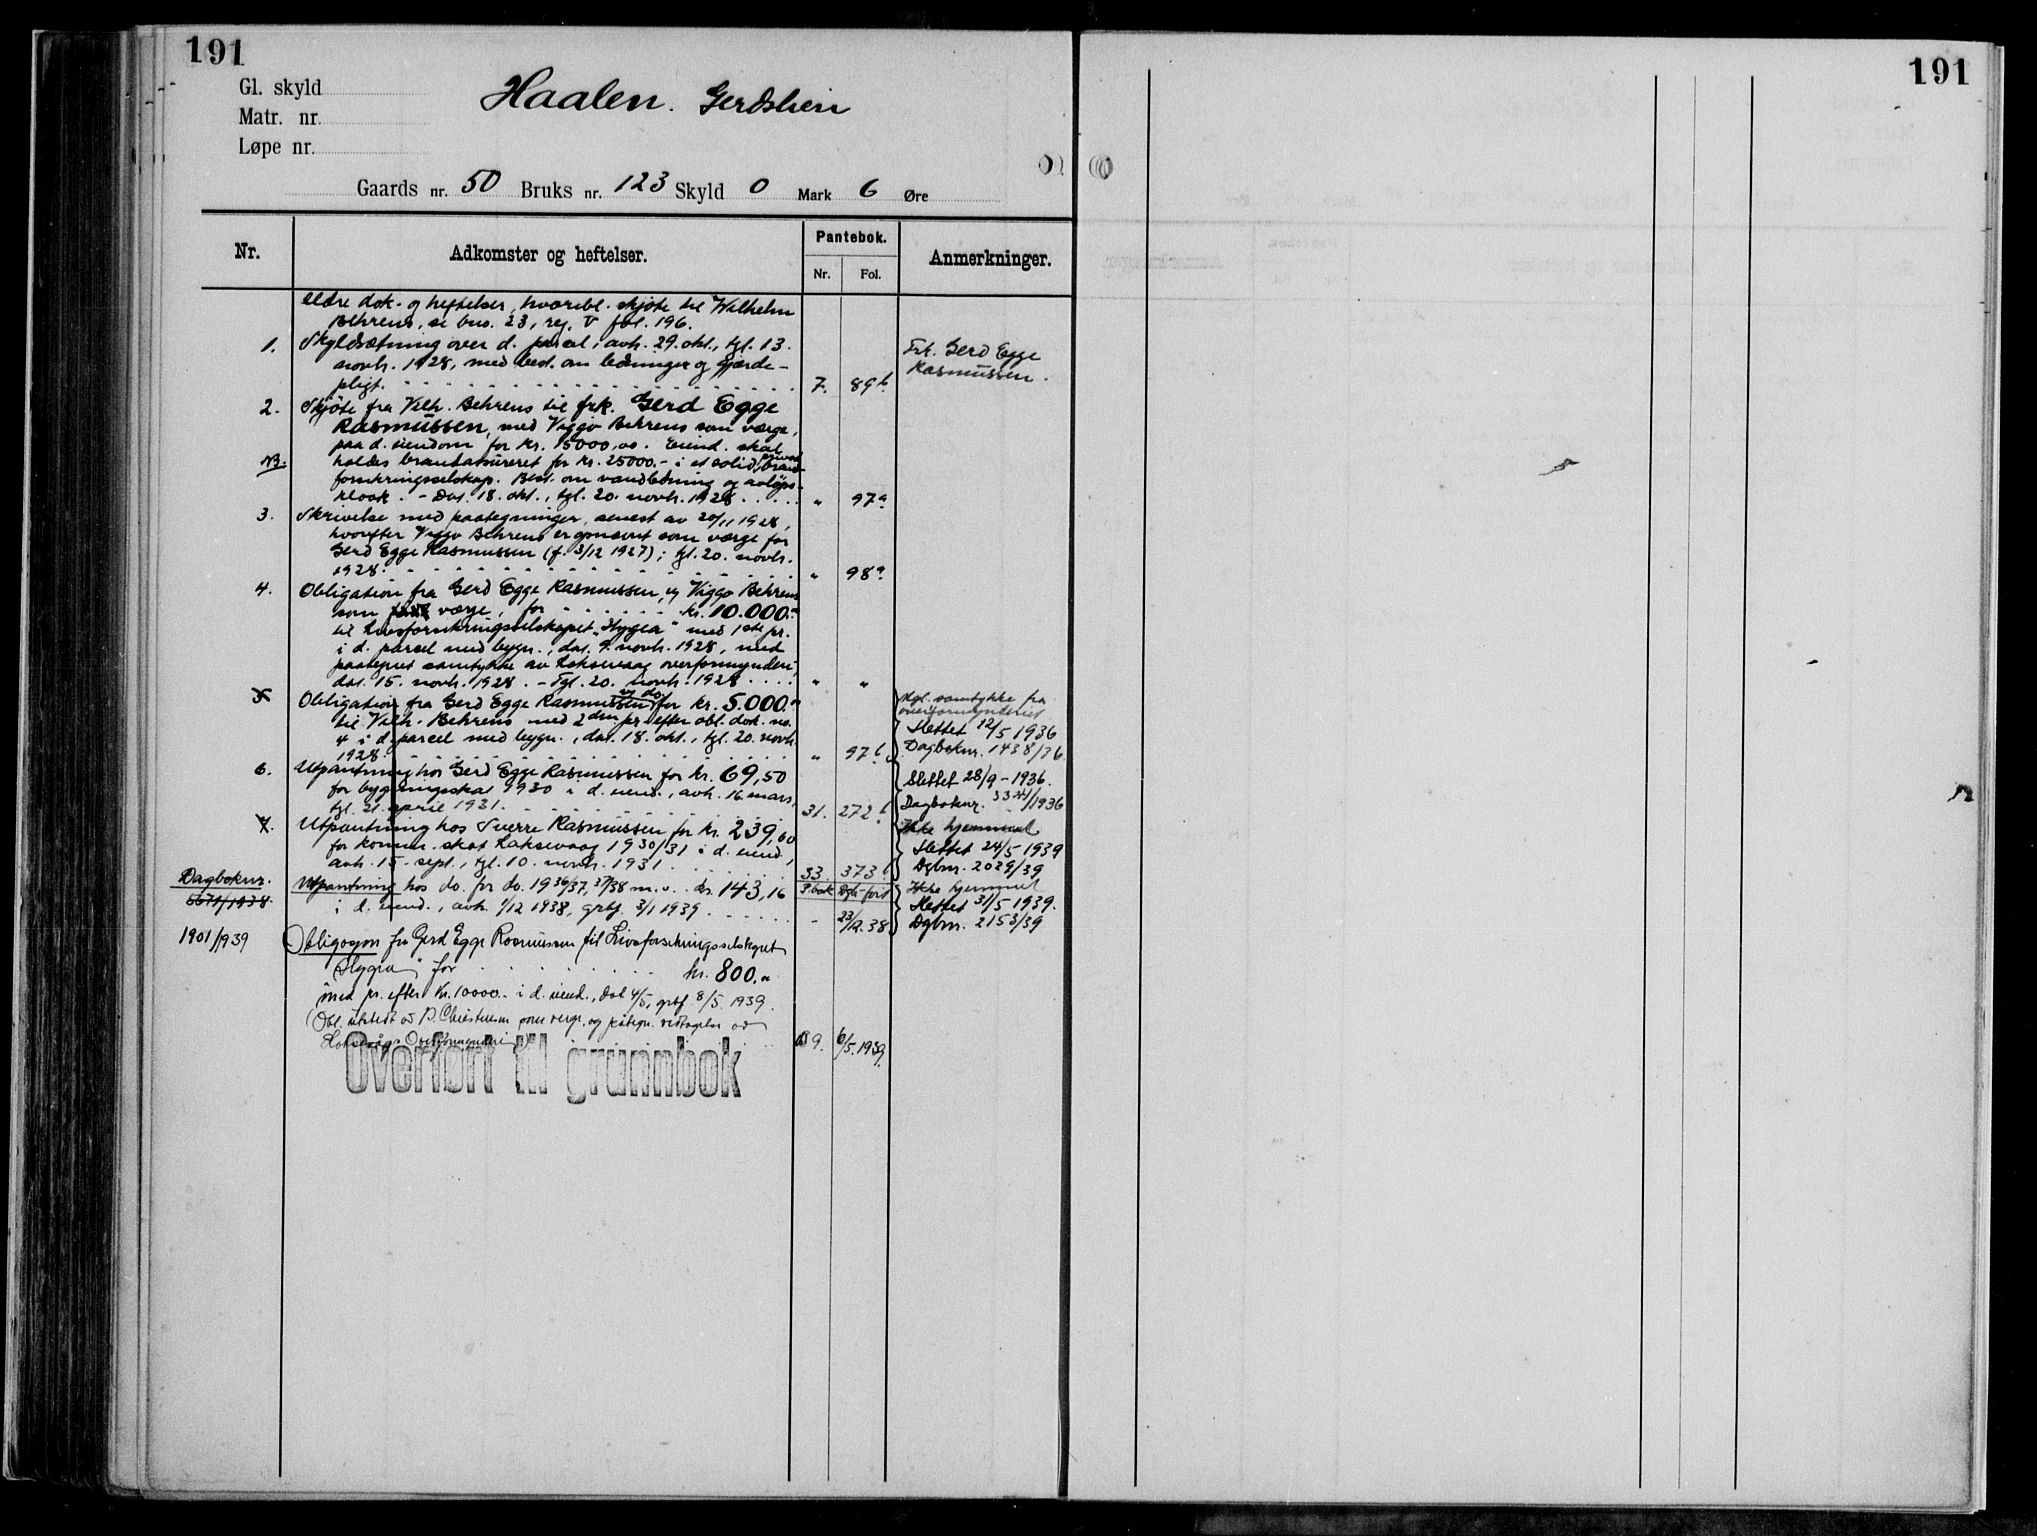 191
191
Gl. skyld
Matr. nr.
Løpe nr.
Haalen. Gerdshein
Gaards nr. 50 Bruks nr. 123 Skyld 0 Mark 6 Øre
Nr.
Adkomster og heftelser.
Pantebok.
Nr. Fol.
Anmerkninger.
Eldre dok. og heftelser, hvoribl. skjøte til Wilhelm
Behrens, se bno. 23, reg. V fol. 196.
1. Skyldsætning over d. parcel, avh. 29. okt., tgl. 13.
novb. 1928, med best. om ledninger og gjerde-
pligt. 7. 89b
Frk. Gerd Egge
Rasmussen.
2. Skjöte fra Vilh. Behrens til frk. Gerd Egge
Rasmussen, med Viggo Behrens som værge,
paa d. eiendom for kr. 15000,00. Eiend. skal
NB. holdes brandassureret for kr. 25000.- i et solid privat brand-
forsikringsselskap. Best. om vandledning og avløps-
kloak. - Dat. 18. okt., tgl. 20. novb. 1928 " 97a
3. Skrivelse med paategninger, senest av 20/11 1928,
hvorefter Viggo Behrens er opnævnt som værge for
Gerd Egge Rasmussen (f. 3/12 1927); tgl. 20. novb.
1928. " 98a
4. Obligation fra Gerd Egge Rasmussen, v/ Viggo Behrens
som værge, for kr. 10.000.-
til Livsforsikringsselskapet "Hygea" med 1ste pr.
i d. parcel med bygn., dat. 9. novb. 1928, med
paategnet samtykke av Laksevaag overformynderi,
dat. 15. novb. 1928. - Tgl. 20. novb. 1928 " "
5. Obligation fra Gerd Egge Rasmussen v/ do. for kr. 5.000.-
til Vilh. Behrens med 2den pr. efter obl. dok. no.
4 i d. parcel med bygn., dat. 18. okt., tgl. 20. novb.
1928. " 97b
Mgl. samtykke fra
overformynderiet
Slettet 12/5 1936
Dagboknr. 1438/36
6. Utpantning hos Gerd Egge Rasmussen for kr. 69,50
for bygningsskat 1930 i d. eiend., avh. 16 mars,
tgl. 21. april 1931. 31. 272b
Slettet 28/9 - 1936.
Dagboknr. /1936
7. Utpantning hos Sverre Rasmussen for kr. 239,60
for komm. skat Laksevaag 1930/31 i d. eiend.,
avh. 15. sept., tgl. 10. novb. 1931. 33. 373b
Ikke hjemmel
Slettet 24/5 1939
Dgbnr. 2029/39
Dagboknr.
5671/1938.
Utpantning hos do. for do. 1936/37, 37/38 m.v. kr. 143,16
i d. eiend., avh. 1/12 1938, grbf. 3/1 1939.
P.bok Dgb-ført
- 23/12.38
Ikke hjemmel
Slettet 31/5 1939.
Dgbnr. 2153/39
1901/1939
Obligasjon fra Gerd Egge Rasmussen til Livsforsikringsselskapet
"Hygea" for kr. 800.-
med pr. efter kr. 10000.- i d. eiend., dat 4/5, grbf. 8/5 1939.
(Obl. utstedt av Christensen som verge, og påtegn. vedtagelse av
Laksevåg Overformynderi) 9. 6/5.1939.
Overført til grunnbok